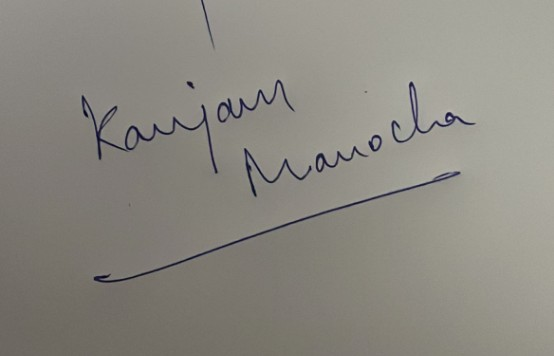 Kanjam
Manocha